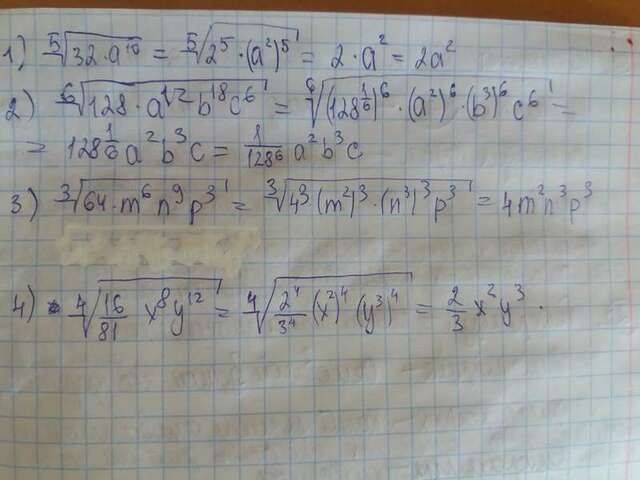 1) ⁵√(32·a¹⁰) = ⁵√(2⁵·(a²)⁵) = 2·a² = 2a²
2) ⁶√(128·a¹²b¹⁸c⁶) = ⁶√((128^(1/6))⁶·(a²)⁶·(b³)⁶c⁶) =
= 128^(1/6)a²b³c = 1/128⁶ a²b³c
3) ³√(64·m⁶n⁹p³) = ³√(4³·(m²)³·(n³)³p³) = 4m²n³p³
4) ⁴√(16/81 x⁸y¹²) = ⁴√(2⁴/3⁴ (x²)⁴(y³)⁴) = 2/3 x²y³.